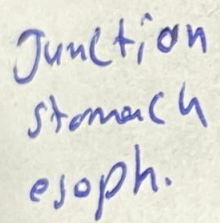 Junction
stomach
esoph.